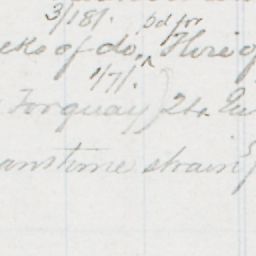 3/18/. pd for
eeks of do, ^ Hire of
1/7/.
Torquay) 24.
anstime strain